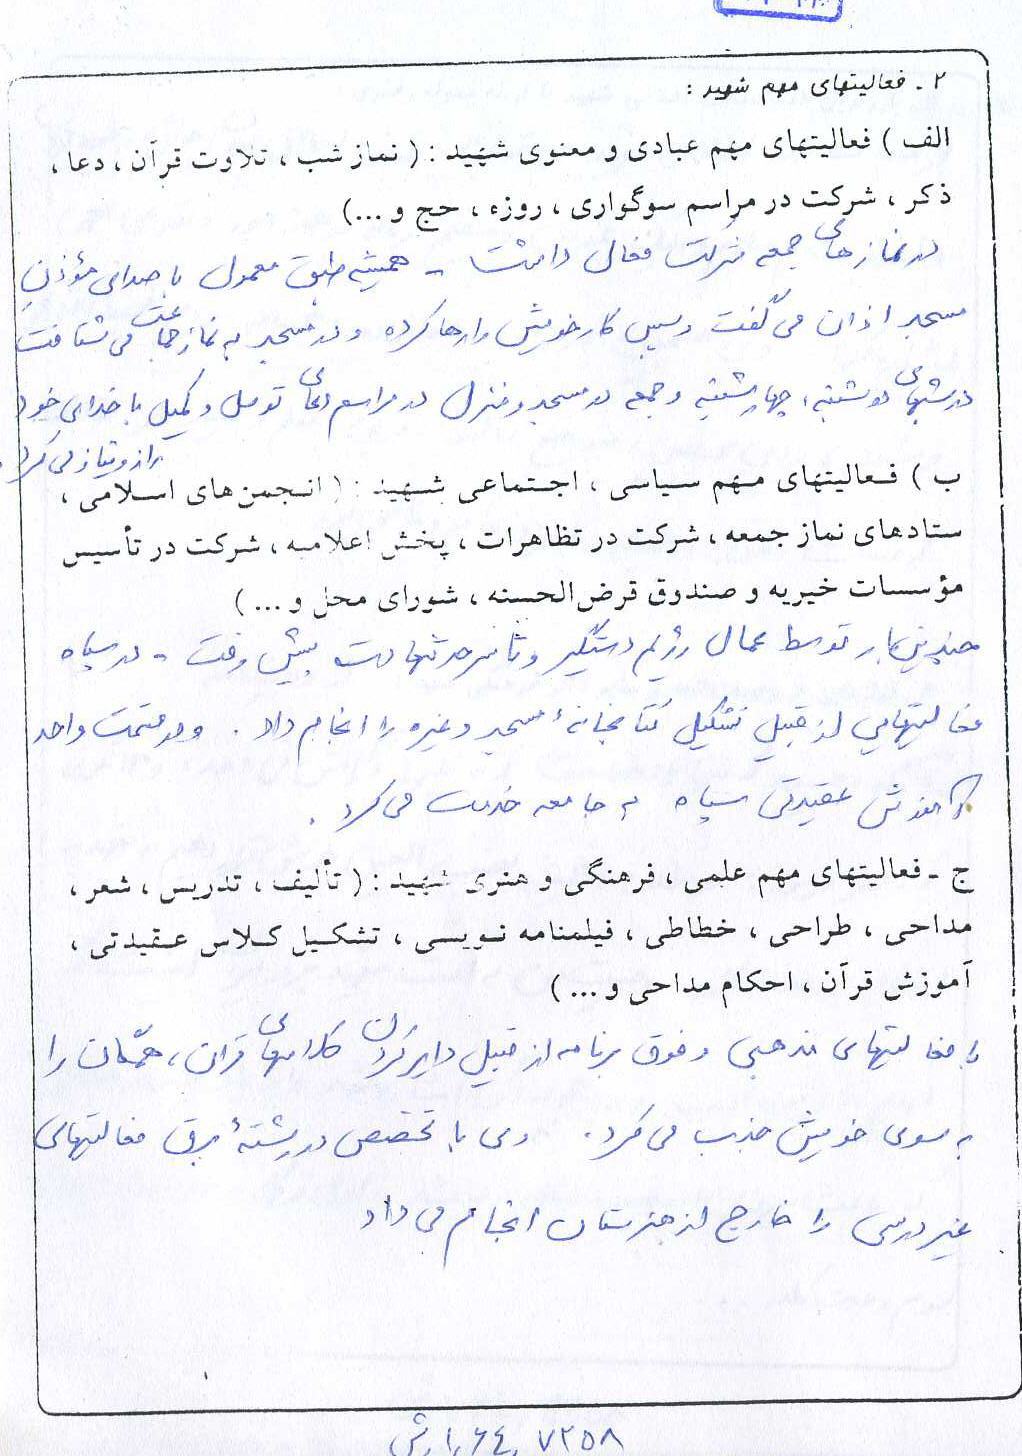 ۲ - فعالیتهای مهم شهید :
الف ) فعالیتهای مهم عبادی و معنوی شهید : ( نماز شب ، تلاوت قرآن ، دعا ،
ذکر ، شرکت در مراسم سوگواری ، روزه ، حج و ...)
در نمازهای جمعه شرکت فعال داشت - همیشه طبق معمول با صدای مؤذن
مسجد اذان می گفت و سپس کار خویش را رها کرده و در مسجد به نماز جماعت می شتافت
در شبهای دوشنبه ، چهارشنبه و جمعه در مسجد و منزل در مراسم دعای توسل و کمیل با خدای خود
راز و نیاز می کرد .
ب ) فعالیتهای مهم سیاسی ، اجتماعی شهید : ( انجمن‌های اسلامی ،
ستادهای نماز جمعه ، شرکت در تظاهرات ، پخش اعلامیه ، شرکت در تأسیس
مؤسسات خیریه و صندوق قرض‌الحسنه ، شورای محل و ... )
چندین بار توسط عمال رژیم دستگیر و تا سرحد شهادت پیش رفت - در سپاه
فعالیتهایی از قبیل تشکیل کتابخانهٔ مسجد و غیره را انجام داد . و در قسمت واحد
آموزش عقیدتی سپاه به جامعه خدمت می کرد .
ج - فعالیتهای مهم علمی ، فرهنگی و هنری شهید : ( تألیف ، تدریس ، شعر ،
مداحی ، طراحی ، خطاطی ، فیلمنامه نویسی ، تشکیل کلاس عقیدتی ،
آموزش قرآن ، احکام مداحی و ... )
با فعالیتهای مذهبی و فوق برنامه از قبیل دایر کردن کلاسهای قرآن ، همگان را
به سوی خویش جذب می کرد . وی با تخصص در رشتهٔ برق فعالیتهای
غیر درسی را خارج از هنرستان انجام می داد
۷۲۵۸